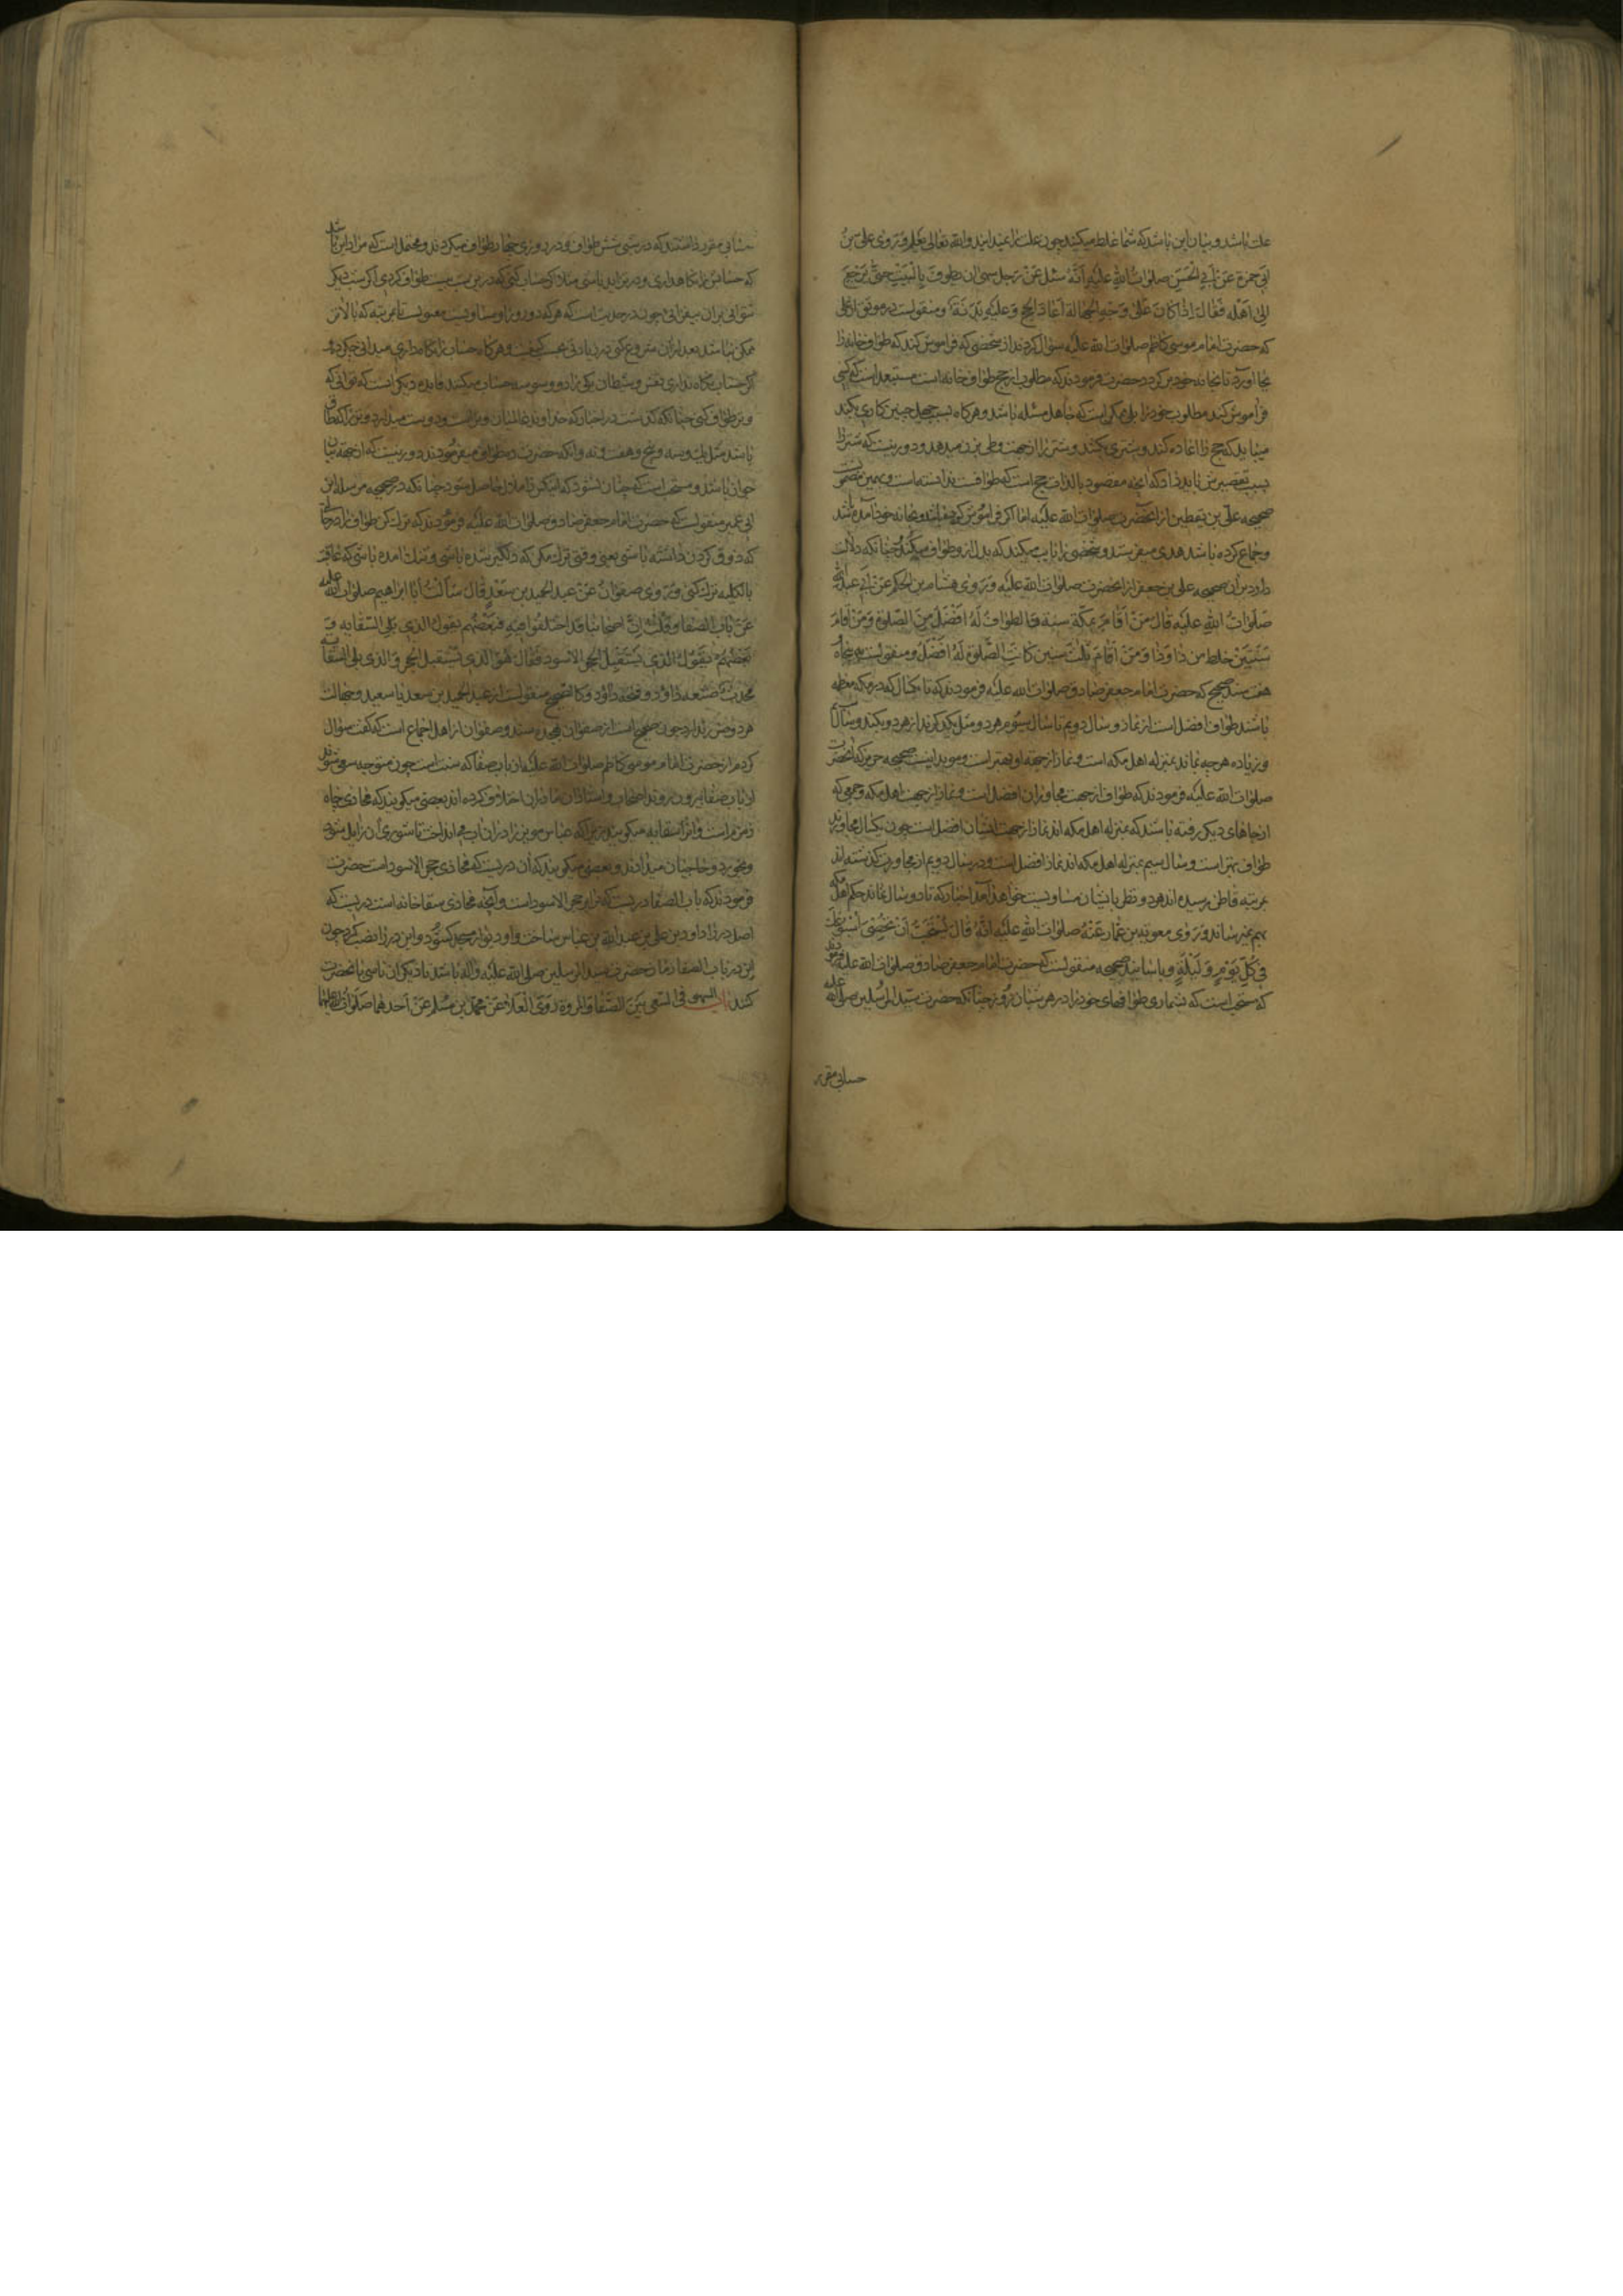 علت باشد و بیان این باشد که شما غلط میکنید چون علت را نمیدانید والله تعالی یعلم وَ رَوی علی بنُ
اَبی حمزة عَن اَبی الحَسَنِ صلوات اللهِ علیه اَنَّهُ سئل عَنْ رَجل سهی ان یطوفَ بِالبَیْتِ حتّی یَرجعَ
اِلی اَهْله فقالَ اِذا کانَ عَلی وَجهِ الجهالة اَعادَ الحج وَ علیهِ بَدَنَة و منقولست در موثق از علی
که حضرت امام موسی کاظم صلوات الله علیه سؤال کردند از شخصی که فراموش کند که طواف خانه را
بجا آورد تا بخانه خود برگردد حضرت فرمودند که مطلوب از حج طواف خانه است مستبعد است که کسی
فراموش کند مطلوب خود را بلی ممکن است که جاهل مسئله باشد و هرگاه بسبب جهل چنین کاری بکند
میباید که حج را اعاده کند و شتری بکشد و شتر را از جهت وطی زن میدهد و دور نیست که شتر را
بسبب تقصیر باید داد که آنچه مقصود بالذات حج است که طوافست ندانسته است و بهمین مضمون
صحیحه علی بن یقطین از آنحضرت صلوات الله علیه اما اگر فراموش کرده باشد و بخانه خود آمده باشد
و جماع کرده باشد هدی میفرستد و شخصی را نایب میکند که بدل از او طواف میکند چنانکه دلالت
دارد بر آن صحیحه علی بن جعفر از آنحضرت صلوات الله علیه وَ رَوی هشام بن الحکم عَن اَبی عبد الله
صَلَوات اللهِ علیه قالَ مَنْ اَقامَ بِمَکّة سنة فالطواف لَهُ اَفْضَلُ مِنَ الصَّلوة وَ مَنْ اَقامَ
سَنَتَیْنِ خلط من ذا وَ ذا وَ مَنْ اَقامَ ثلث سنین کانَتِ الصَّلوة لَهُ اَفضَل و منقولست به پنجاه
هفت سند صحیح که حضرت امام جعفر صادق صلوات الله علیه فرمودند که تا یکسال که در مکه معظمه
باشند طواف افضل است از نماز و سال دویم تا سال سیّوم هر دو مثل یکدیگرند از هر دو بکند و سال سیم
و زیاده هر چه بماند بمنزله اهل مکه است و نماز از جهة او بهتر است و موید اینست صحیحه حریز که آنحضرت
صلوات الله علیه فرمودند که طواف از جهت مجاوران افضل است و نماز از جهت اهل مکه و جمعی که
از جاهای دیگر رفته باشند که بمنزله اهل مکه اند نماز از جهت ایشان افضل است چون یکسال مجاورند
طواف بهتر است و سال سیم بمنزله اهل مکه اند نماز افضل است و در سال دویم از مجاورت گذشته اند
بمرتبه قاطن نرسیده اند هر دو نظر بایشان مساویست خواهد آمد اخبار که تا دو سال نماند حکم اهل مکه
بهم نمیرساند وَ رَوی معویة بن عمار عَنْهُ صلوات اللهِ علیه اَنَّهُ قالَ یُسْتَحَبُّ اَنْ تُحْصِیَ اُسْبُوعَکَ
فی کُلِّ یَوْمٍ وَ لَیْلَةٍ و باسانید صحیحه منقولست که حضرت امام جعفر صادق صلوات الله علیه فرمودند
که سنت است که بشماری طوافهای خود را در هر شبان روز چنانکه حضرت سید المرسلین صلی الله علیه
حسابی مقرر
حسابی مقرر داشتند که در شبی شش طواف و در روزی چهار طواف میکردند و محتمل است که مراد این باشد
که حسابش را نگاه داری و در تزاید باشی مثلا اگر حساب کنی که درین شب بیست طواف کردی اگر شب دیگر
توانی بر آن بیفزائی چون در حدیث است که هر که دو روز او مساویست مغبونست تا بمرتبه که بالاتر
ممکن نباشد بعد از آن شروع کنی در زیادتی بحسب کیفیت و هرگاه حساب را نگاه داری میدانی چه کرده
اگر حساب نگاه نداری نفس و شیطان یکی را دو و سی و سه حساب میکنند فایده دیگر است که توانی که
وتر طواف کنی چنانکه گذشت در اخبار که خداوند عالمیان وتر است و دوست میدارد وتر را که طاق
باشد مثل یک و سه و پنج و هفت و نه و آنکه حضرت ده طواف میفرمودند دور نیست که از جهة بیان
جواز باشد و مستحب است که چنان نشود که دلگیر یا ملال حاصل شود چنانکه در صحیحه مرسله ابن
ابی عمیر منقولست که حضرت امام جعفر صادق صلوات الله علیه فرمودند که ترک کن طواف را در حالتی
که ذوق کردن داشته باشی یعنی وقتی ترک مکن که دلگیر شده باشی و بتنگ آمده باشی که عاقبت
بالکلیه ترک کنی وَ رَوی صفوانُ عَنْ عبد الحمید بن سَعْدٍ قال سَاَلْتُ اَبا ابراهیم صلوات الله علیه
عَنْ بابِ الصفا وَ قُلْتُ اِنَّ اَصْحابنا قد اختلفوا فیهِ فبَعْضُهُم یقول الذی یَلی السّقایه وَ
بَعْضُهُم یَقُولُ الذی یَسْتَقْبِلُ الحجر الاسود فقال هُوَ الذی یَسْتقبل الحجر وَ الذی یلی السّقایة
محدث صَنَعه داوُد و فتحه داوُد و کالصحیح منقولست از عبد الحمید بن سعد یا سعید و جهالت
هر دو ضرر ندارد چون صحیح است از صفوان بچند سند و صفوان از اهل اجماع است که گفت سؤال
کردم از حضرت امام موسی کاظم صلوات الله علیه از باب صفا که سنت است چون متوجه سعی شوند
از باب صفا بیرون روند اصحاب و استادان ما در آن اختلاف کرده اند بعضی میگویند که محاذی چاه
زمزم است و آنرا سقایه میگویند زیرا که عباس مویز را در آن آب می انداخت تا شوری آن زایل شود
و بخورد و حاجیان میدادند و بعضی میگویند که آن دریست که محاذی حجر الاسود است حضرت
فرمودند که باب الصفا دریست که برابر حجر الاسود است و آنچه محاذی سقاخانه است دریست که
اصل در را داود بن علی بن عبد الله بن عباس ساخت و او دیوار مسجد گشود و این در را نصب کرد چون
این در باب الصفا زمان حضرت سید المرسلین صلی الله علیه و آله باشد تا دیگران تاسی بآنحضرت
کنند باب السهو فی السّعی بَیْنَ الصَّفا وَ المروة رَوَی العَلاءُ عَنْ محمّد بن مُسلم عَنْ اَحَدهما صَلَوات الله علیهما